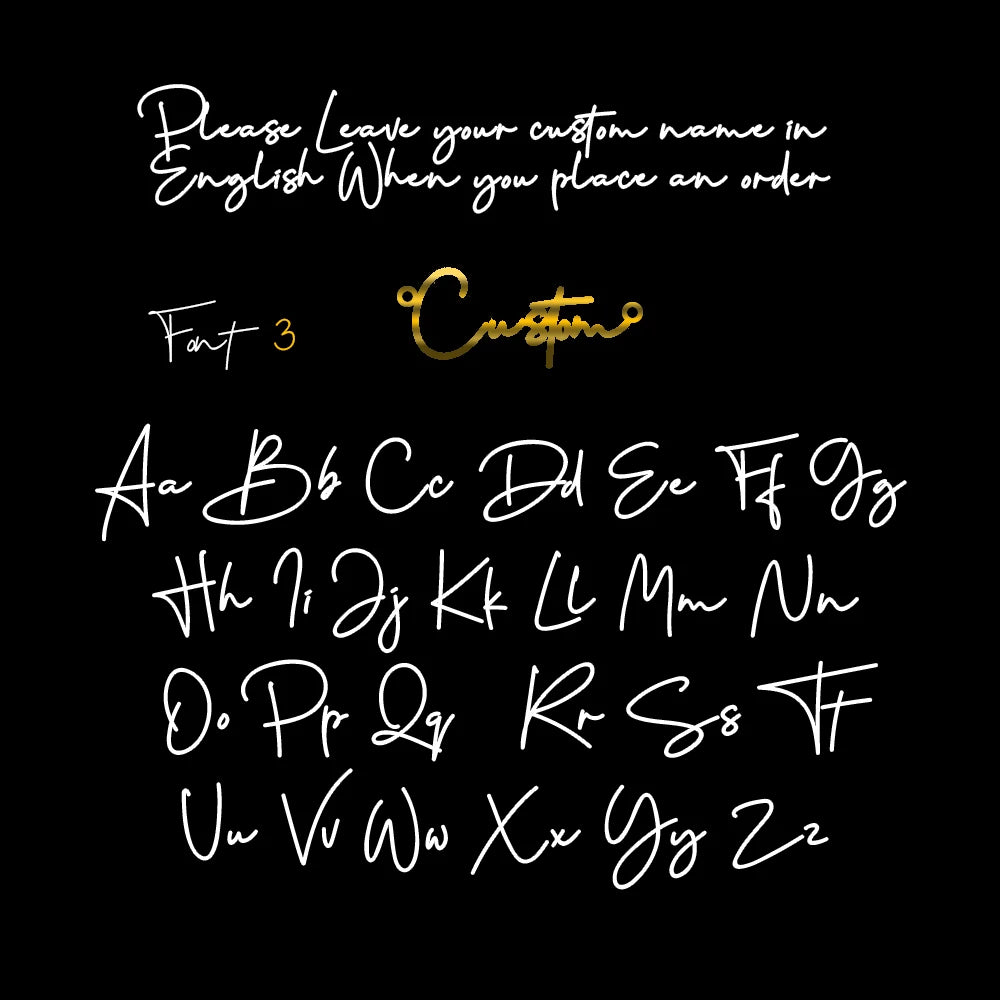 Please Leave your custom name in
English When you place an order
Font 3
Custom
Aa Bb Cc Dd Ee Ff Gg
Hh Ii Jj Kk Ll Mm Nn
Oo Pp Qq Rr Ss Tt
Uu Vv Ww Xx Yy Zz